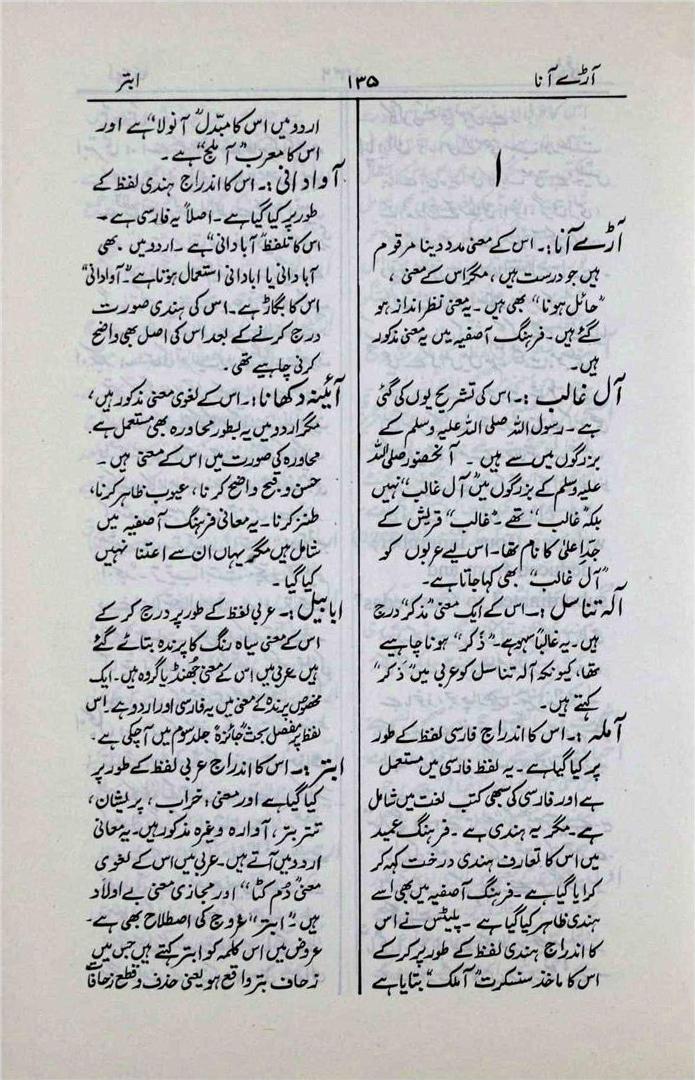 آڑے آنا
۱۳۵
ابتر
ا
آڑے آنا:۔ اس کے معنی مدد دینا مرقوم
ہیں جو درست ہیں، مگر اس کے معنی،
"حائل ہونا" بھی ہیں۔ یہ معنی نظر انداز ہو
گئے ہیں۔ فرہنگ آصفیہ میں یہ معنی مذکور
ہیں۔
آل غالب:۔ اس کی تشریح یوں کی گئی
ہے۔ رسول اللہ صلی اللہ علیہ وسلم کے
بزرگوں میں سے ہیں۔ آنحضور صلی اللہ
علیہ وسلم کے بزرگوں میں "آل غالب" نہیں
بلکہ "غالب" تھے۔ "غالب" قریش کے
جدِّ اعلیٰ کا نام تھا۔ اس لیے عربوں کو
"آل غالب" بھی کہا جاتا ہے۔
آلہ تناسل:۔ اس کے ایک معنی "مذکر" درج
ہیں۔ یہ غالباً سہو ہے۔ "ذَکر" ہونا چاہیے
تھا، کیونکہ آلہ تناسل کو عربی میں "ذَکر"
کہتے ہیں۔
آملہ:۔ اس کا اندراج فارسی لفظ کے طور
پر کیا گیا ہے۔ یہ لفظ فارسی میں مستعمل
ہے اور فارسی کی سبھی کتب لغت میں شامل
ہے۔ مگر یہ ہندی ہے۔ فرہنگ عمید
میں اس کا تعارف ہندی درخت کہہ کر
کرایا گیا ہے۔ فرہنگ آصفیہ میں بھی اسے
ہندی ظاہر کیا گیا ہے۔ پلیٹس نے اس
کا اندراج ہندی لفظ کے طور پر کر کے
اس کا ماخذ سنسکرت "آملک" بتایا ہے
اردو میں اس کا مبدّل "آنولا" ہے اور
اس کا معرب "آملج" ہے۔
آوادانی:۔ اس کا اندراج ہندی لفظ کے
طور پر کیا گیا ہے۔ اصلاً یہ فارسی ہے۔
اس کا تلفظ "آبادانی" ہے۔ اردو میں بھی
آبادانی یا ابادانی استعمال ہوتا ہے۔ "آوادانی"
اس کا بگاڑ ہے۔ اس کی ہندی صورت
درج کرنے کے بعد اس کی اصل بھی واضح
کرنی چاہیے تھی۔
آئینہ دکھانا:۔ اس کے لغوی معنی مذکور ہیں،
مگر اردو میں یہ بطور محاورہ بھی مستعمل ہے۔
محاورہ کی صورت میں اس کے معنی ہیں۔
حسن و قبح واضح کرنا، عیوب ظاہر کرنا،
طنز کرنا۔ یہ معانی فرہنگ آصفیہ میں
شامل ہیں مگر یہاں ان سے اعتنا نہیں
کیا گیا۔
ابابیل:۔ عربی لفظ کے طور پر درج کر کے
اس کے معنی سیاہ رنگ کا پرندہ بتائے گئے
ہیں۔ عربی میں اس کے معنی جُھنڈ یا گروہ ہیں۔ ایک
مخصوص پرندہ کے معنی میں یہ فارسی اور اردو ہے۔ اس
لفظ پر مفصل بحث "جائزہ" جلد سوم میں آ چکی ہے۔
ابتر:۔ اس کا اندراج عربی لفظ کے طور پر
کیا گیا ہے اور معنی: خراب، پریشان،
تتر بتر، آوارہ وغیرہ مذکور ہیں۔ یہ معانی
اردو میں آتے ہیں۔ عربی میں اس کے لغوی
معنی "دُم کٹا" اور مجازی معنی بے اولاد
ہیں۔ "ابتر" عروج کی اصطلاح بھی ہے۔
عروض میں اس کلمہ کو ابتر کہتے ہیں جس میں
زحاف بتر واقع ہو یعنی حذف و قطع زحافات